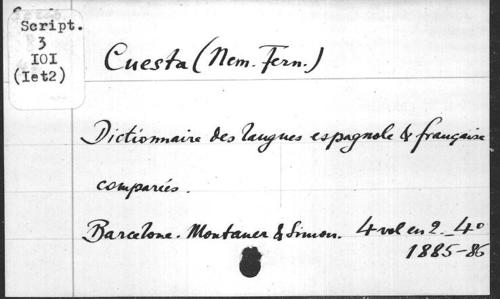 Script.
3
IOI
(Iet2)
Cuesta (Nem. Fern.)
Dictionnaire des langues espagnole & française
comparées.
Barcelone. Montaner & Simon. 4 vol en 2. 4º
1885-86